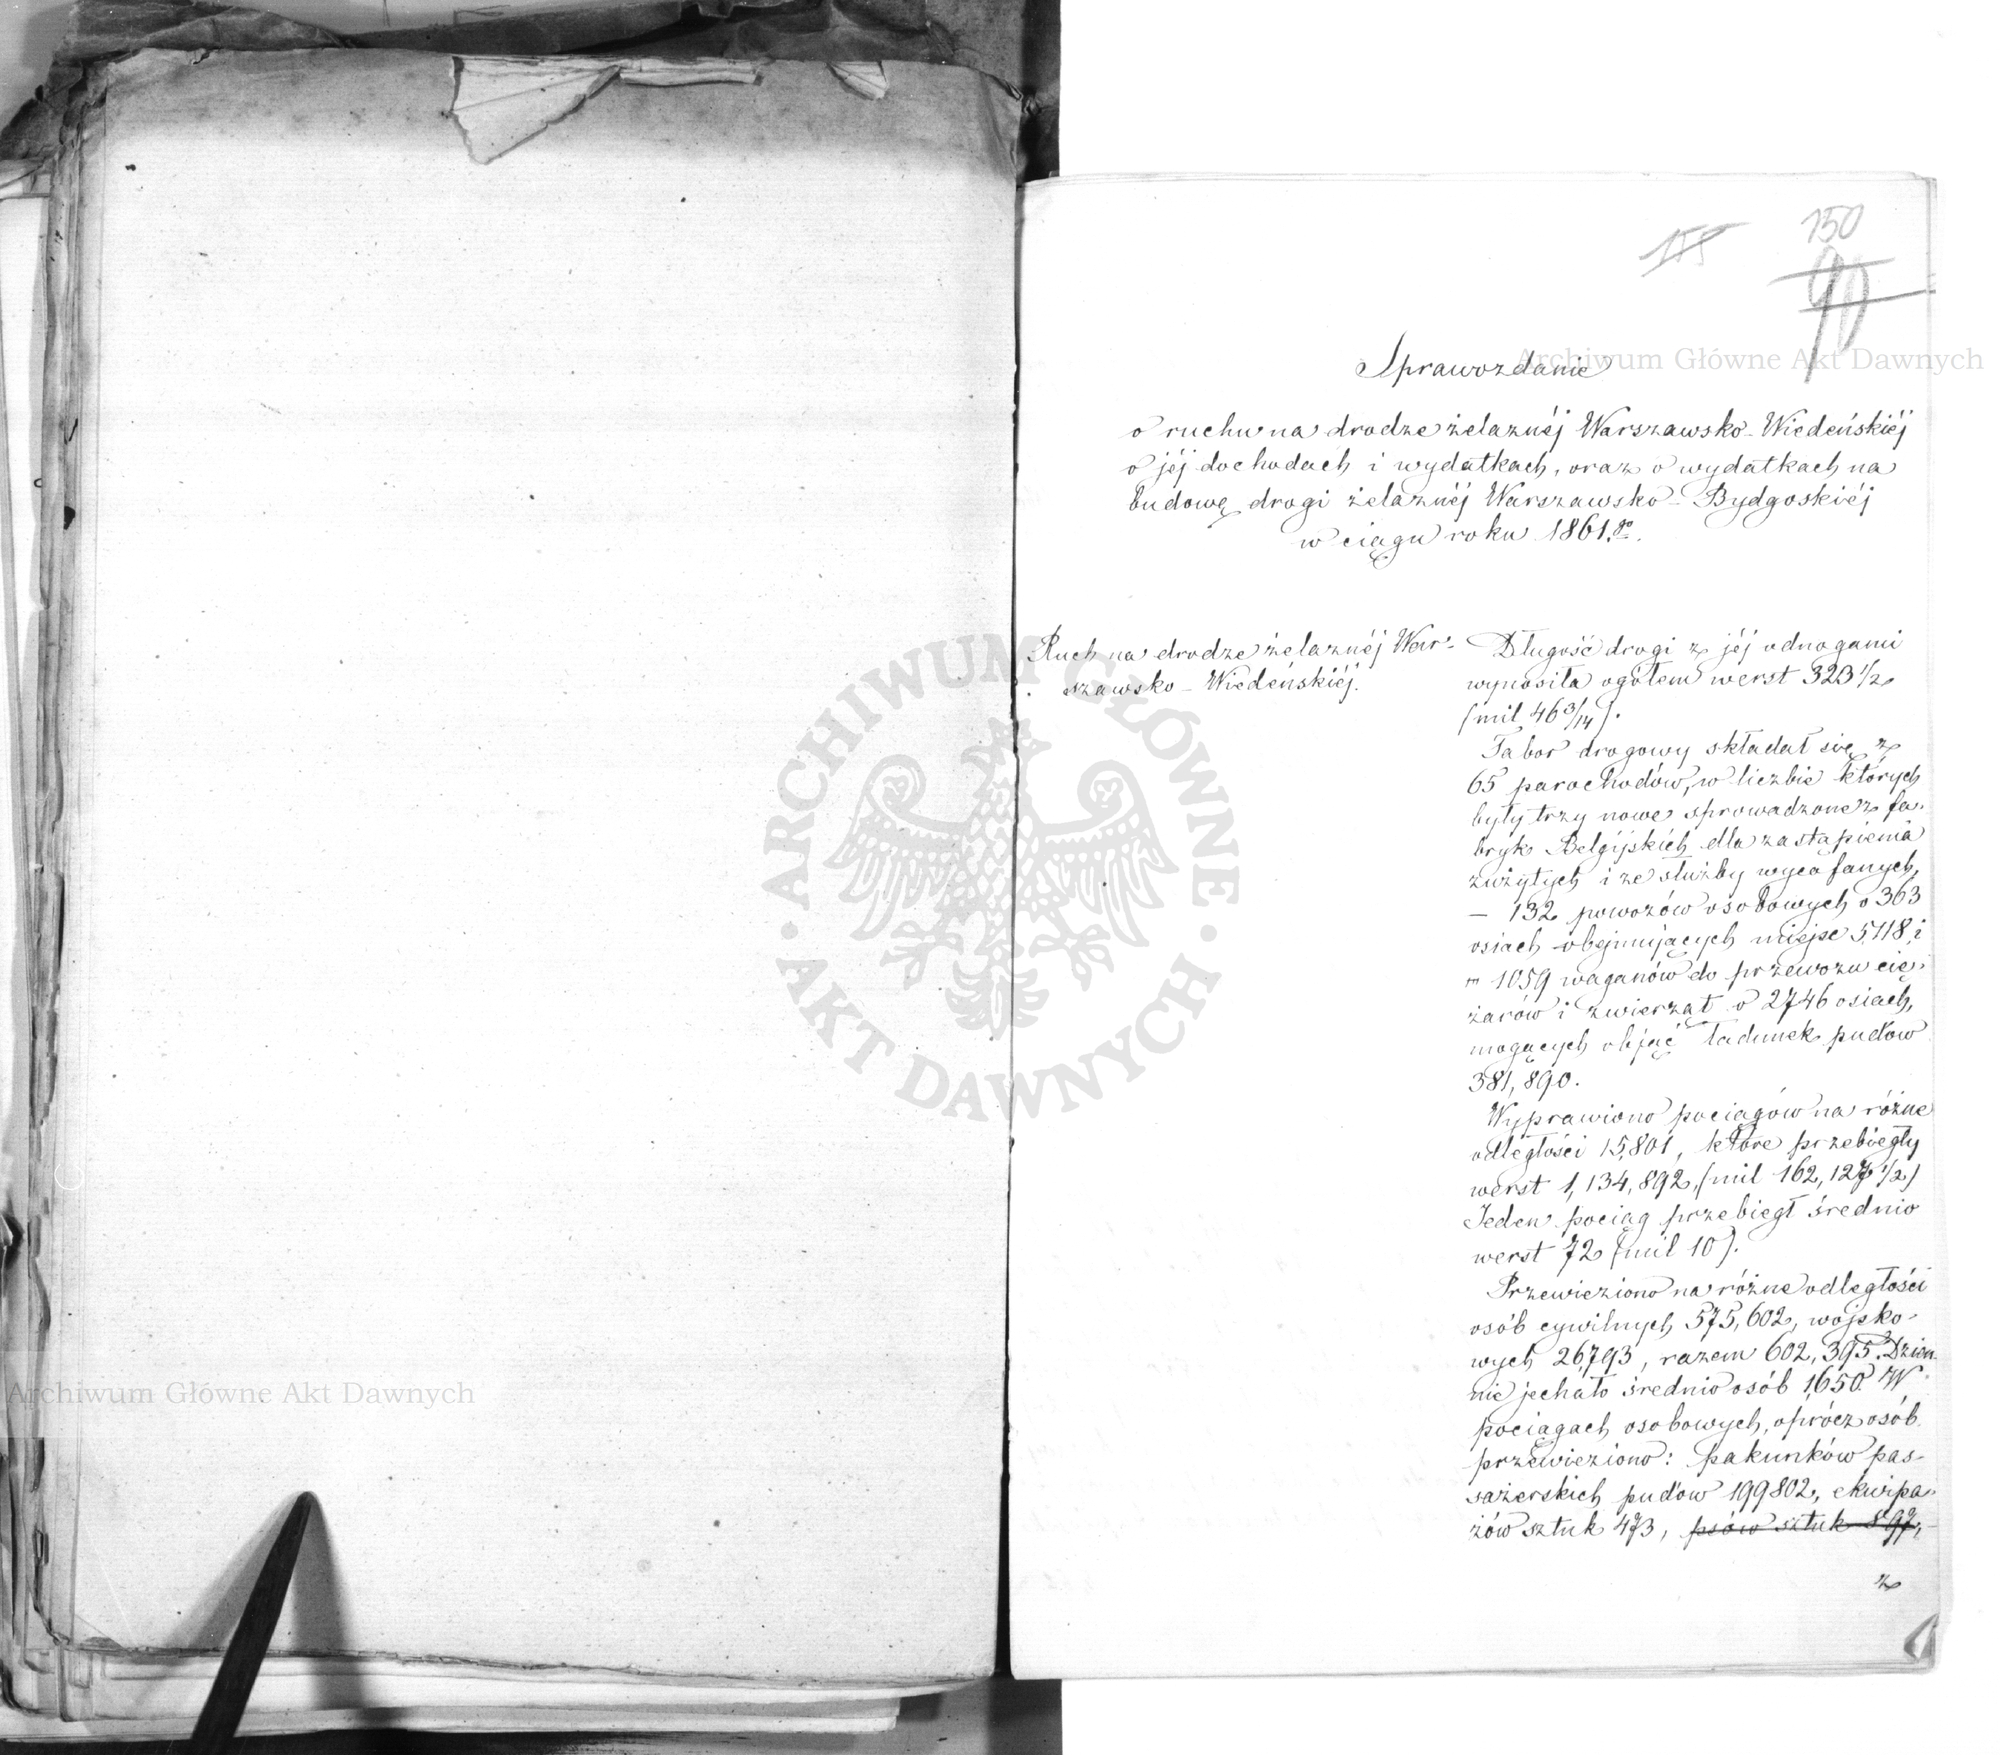 150
90
Sprawozdanie
o ruchu na drodze żelaznéj Warszawsko-Wiedeńskiéj
o jéj dochodach i wydatkach, oraz o wydatkach na
budowę drogi żelaznéj Warszawsko-Bydgoskiéj
w ciągu roku 1861.go
Ruch na drodze żelaznéj War-
szawsko-Wiedeńskiéj.
Długość drogi z jéj odnogami
wynosiła ogółem werst 323 1/2
(mil 46 3/14).
Tabor drogowy składał się z
65 parochodów, w liczbie których
były trzy nowe sprowadzone z fa-
bryk Belgijskich dla zastąpienia
zużytych i ze służby wycofanych,
— 132 powozów osobowych o 363
osiach obejmujących miejsc 5,118, i
1059 waganów do przewozu cię-
żarów i zwierząt o 2746 osiach,
mogących objąć ładunek pudów
381,890.
Wyprawiono pociągów na różne
odległości 15,801, które przebiegły
werst 1,134,892, (mil 162,127 1/2)
Jeden pociąg przebiegł średnio
werst 72 (mil 10).
Przewieziono na różne odległości
osób cywilnych 575,602, wojsko-
wych 26,793, razem 602,395. Dzien-
nie jechało średnio osób 1,650. W
pociągach osobowych, oprócz osób
przewieziono: pakunków pas-
sażerskich pudów 199802, ekwipa-
żów sztuk 473, psów sztuk 897,
z
Archiwum Główne Akt Dawnych
Archiwum Główne Akt Dawnych
ARCHIWUM GŁÓWNE
AKT DAWNYCH